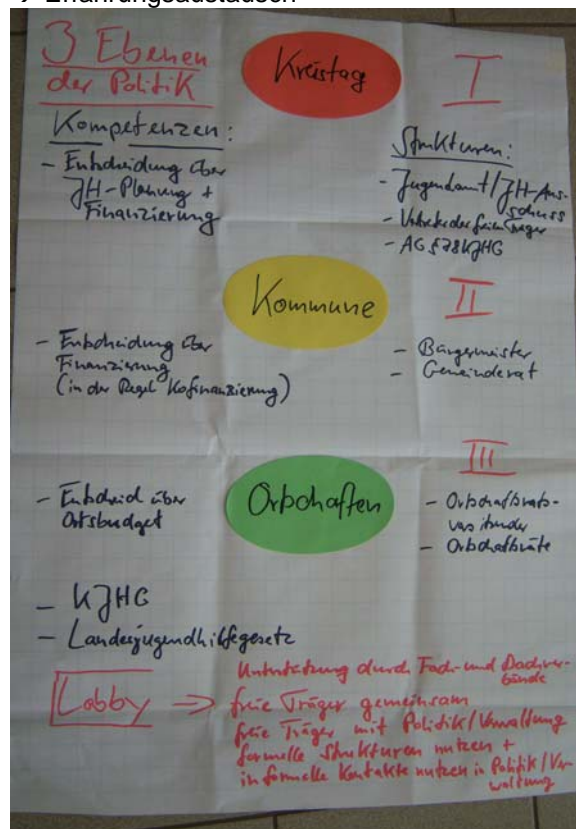 → Erfahrungsaustausch
3 Ebenen
der Politik
Kreistag
I
Kompetenzen:
- Entscheidung über
JH-Planung +
Finanzierung
Strukturen:
- Jugendamt/JH-Aus-
schuss
- Vertreter der freien Träger
- AG § 78 KJHG
Kommune
II
- Entscheidung über
Finanzierung
(in der Regel Kofinanzierung)
- Bürgermeister
- Gemeinderat
Ortschaften
III
- Entscheid über
Ortsbudget
- Ortschaftsrats-
vorsitzender
- Ortschaftsräte
- KJHG
- Landesjugendhilfegesetz
Lobby ⇒
Unterstützung durch Fach- und Dachver-
bände
freie Träger gemeinsam
freie Träger mit Politik/Verwaltung
formelle Strukturen nutzen +
informelle Kontakte nutzen in Politik/Ver
waltung